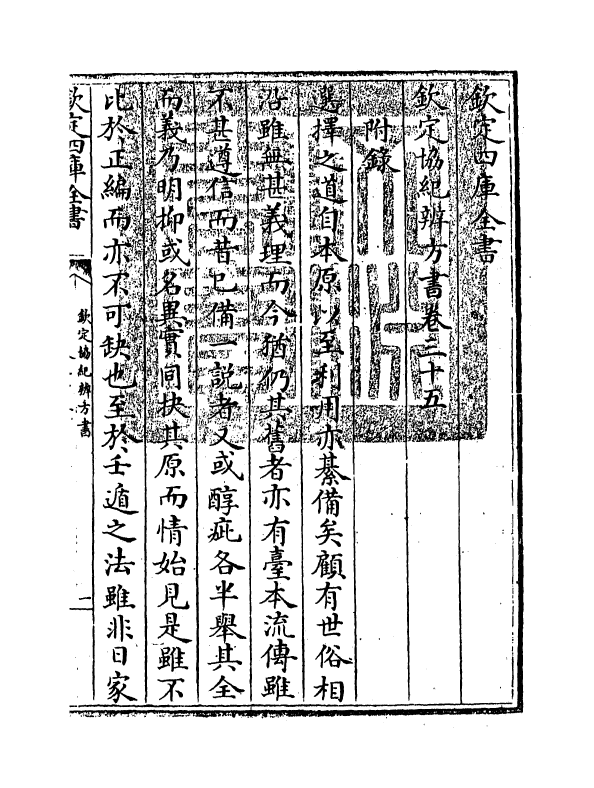 欽定四庫全書
欽定協紀辨方書卷三十五
附錄
選擇之道自本原以至利用亦綦備矣顧有世俗相
沿雖無甚義理而今猶仍其舊者亦有臺本流傳雖
不甚遵信而昔已備一說者又或醇疵各半舉其全
而義乃明抑或名異實同抉其原而情始見是雖不
比於正編而亦不可缺也至於壬遁之法雖非日家
欽定四庫全書
欽定協紀辨方書
一